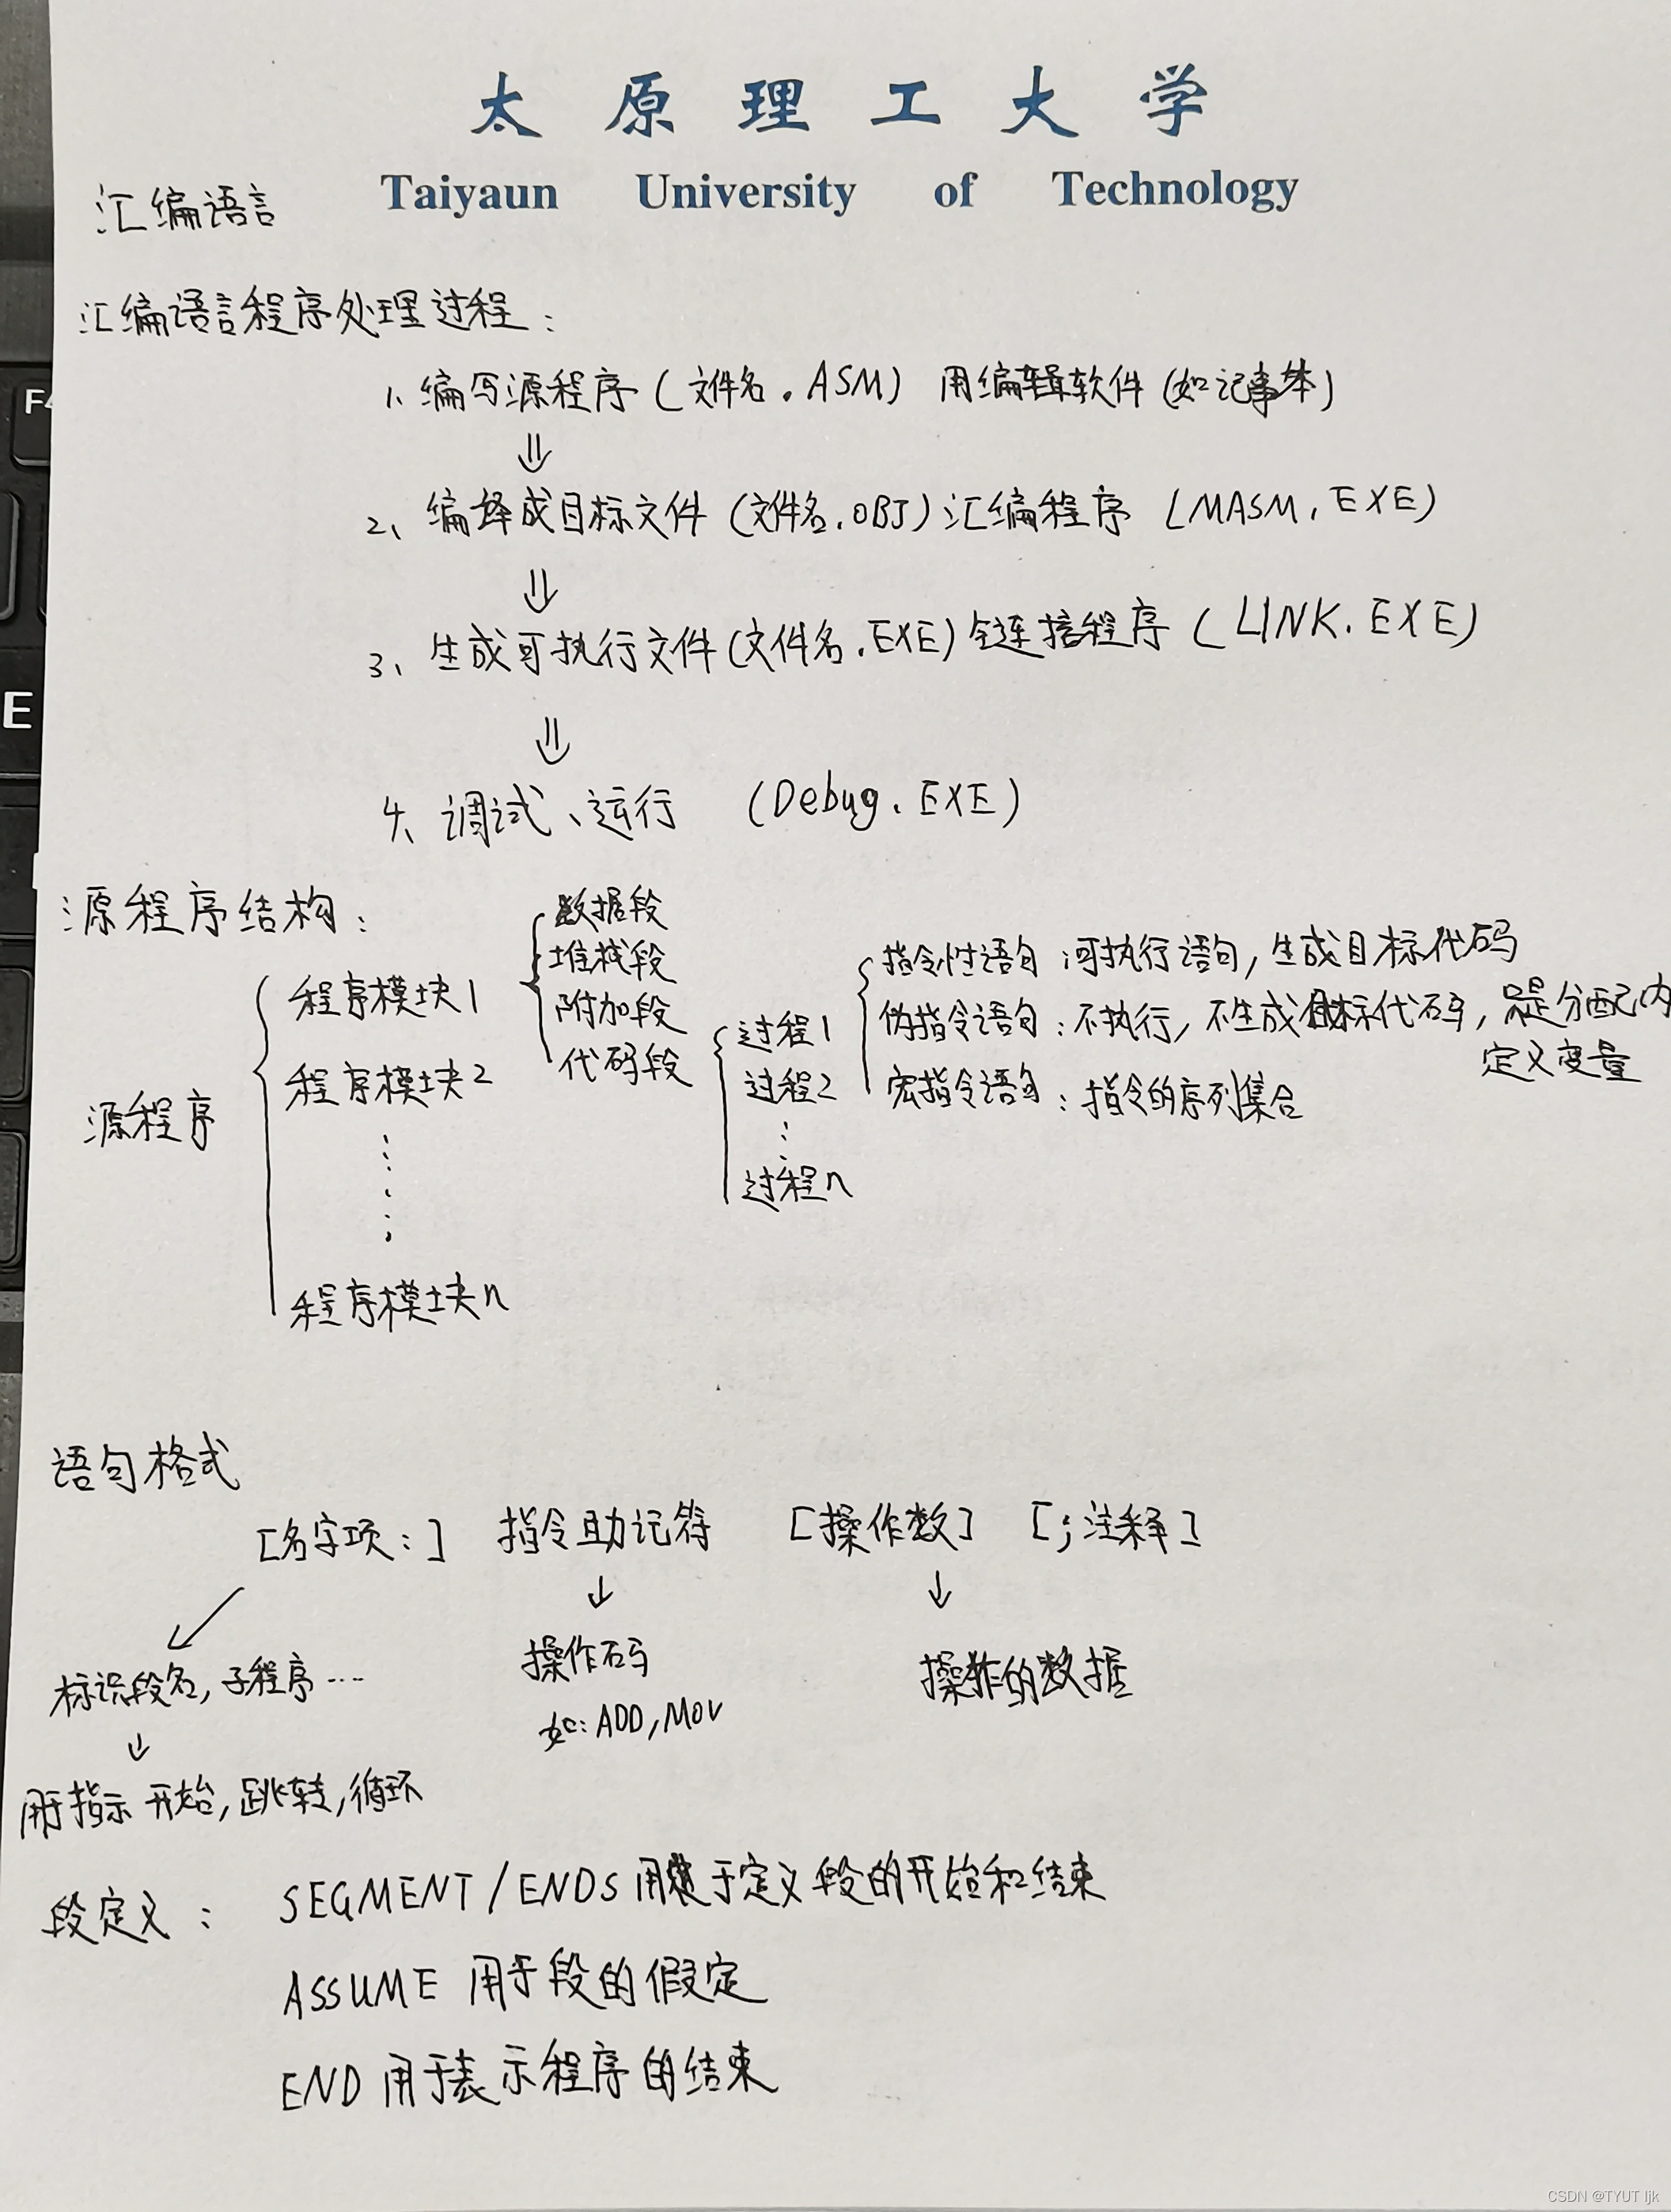 太原理工大学
Taiyaun University of Technology
汇编语言
汇编语言程序处理过程：
1、编写源程序（文件名.ASM） 用编辑软件（如记事本）
⇓
2、编译成目标文件（文件名.OBJ）汇编程序（MASM.EXE）
⇓
3、生成可执行文件（文件名.EXE）链连接程序（LINK.EXE）
⇓
4、调试、运行 （Debug.EXE）
源程序结构：
源程序
程序模块1
程序模块2
程序模块n
数据段
堆栈段
附加段
代码段
过程1
过程2
过程n
指令性语句：可执行语句，生成目标代码
伪指令语句：不执行，不生成目标代码，只是分配内
定义变量
宏指令语句：指令的序列集合
语句格式
[名字项：] 指令助记符 [操作数] [；注释]
标识段名，子程序……
操作码
如：ADD，MOV
操作的数据
用于指示开始，跳转，循环
段定义：
SEGMENT/ENDS 用于定义段的开始和结束
ASSUME 用于段的假定
END 用于表示程序的结束
F4
E
CSDN @TYUT ljk